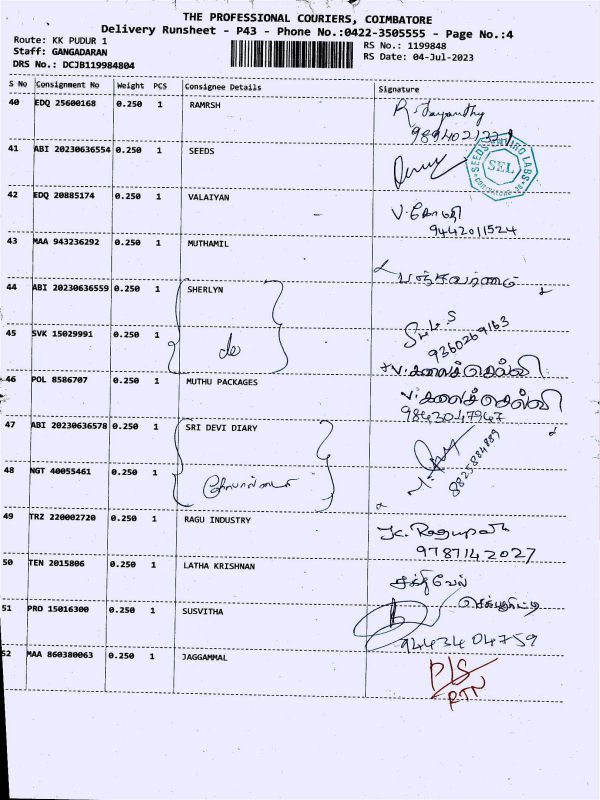 THE PROFESSIONAL COURIERS, COIMBATORE
Delivery Runsheet - P43 - Phone No.:0422-3505555 - Page No.:4
Route: KK PUDUR 1
Staff: GANGADARAN
DRS No.: DCJB119984804
RS No.: 1199848
RS Date: 04-Jul-2023
S No Consignment No Weight PCS Consignee Details Signature
40 EDQ 25600168 0.250 1 RAMRSH
41 ABI 20230636554 0.250 1 SEEDS
SEL
42 EDQ 20885174 0.250 1 VALAIYAN V.கோமதி
9442011524
43 MAA 943236292 0.250 1 MUTHAMIL
44 ABI 20230636559 0.250 1 SHERLYN
9360269163
45 SVK 15029991 0.250 1 do
V.கலைச்செல்வி
46 POL 8586707 0.250 1 MUTHU PACKAGES V.கலைச்செல்வி
9843047947
47 ABI 2020636578 0.250 1 SRI DEVI DIARY
8825884889
48 NGT 40055461 0.250 1
49 TRZ 220002720 0.250 1 RAGU INDUSTRY K. Ragupathi
9787142027
50 TEN 2015806 0.250 1 LATHA KRISHNAN சக்திவேல்
51 PRO 15016300 0.250 1 SUSVITHA
9443404759
52 MAA 860380063 0.250 1 JAGGAMMAL P/S
RTN